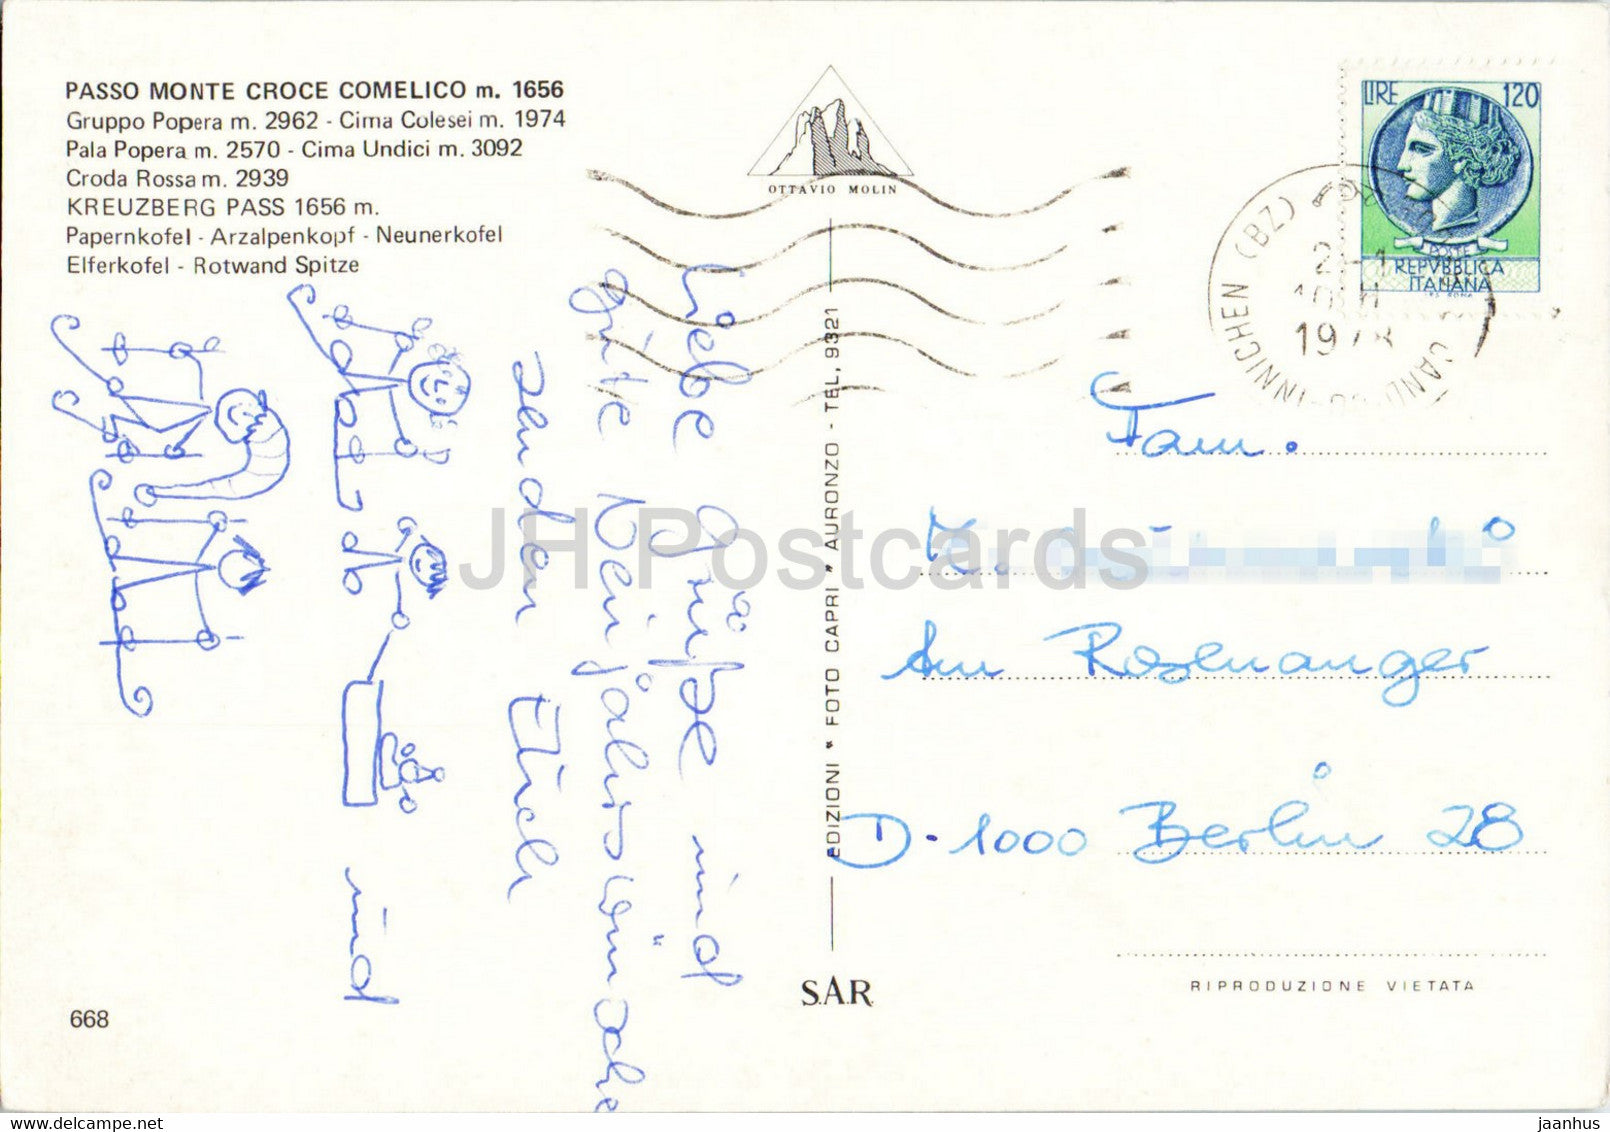 PASSO MONTE CROCE COMELICO m. 1656
Gruppo Popera m. 2962 - Cima Colesei m. 1974
Pala Popera m. 2570 - Cima Undici m. 3092
Croda Rossa m. 2939
KREUZBERG PASS 1656 m.
Papernkofel - Arzalpenkopf - Neunerkofel
Elferkofel - Rotwand Spitze
OTTAVIO MOLIN
LIRE 120
POSTE
REPVBBLICA
ITALIANA
INNICHEN (BZ)
Liebe Grüße und
gute Neujahrswünsche
senden Euch
und
EDIZIONI * FOTO CAPRI * AURONZO - TEL. 9321
Fam.
K.
Am Rosenanger
D-1000 Berlin 28
S.A.R.
RIPRODUZIONE VIETATA
668
JH Postcards
jaanhus
delcampe.net